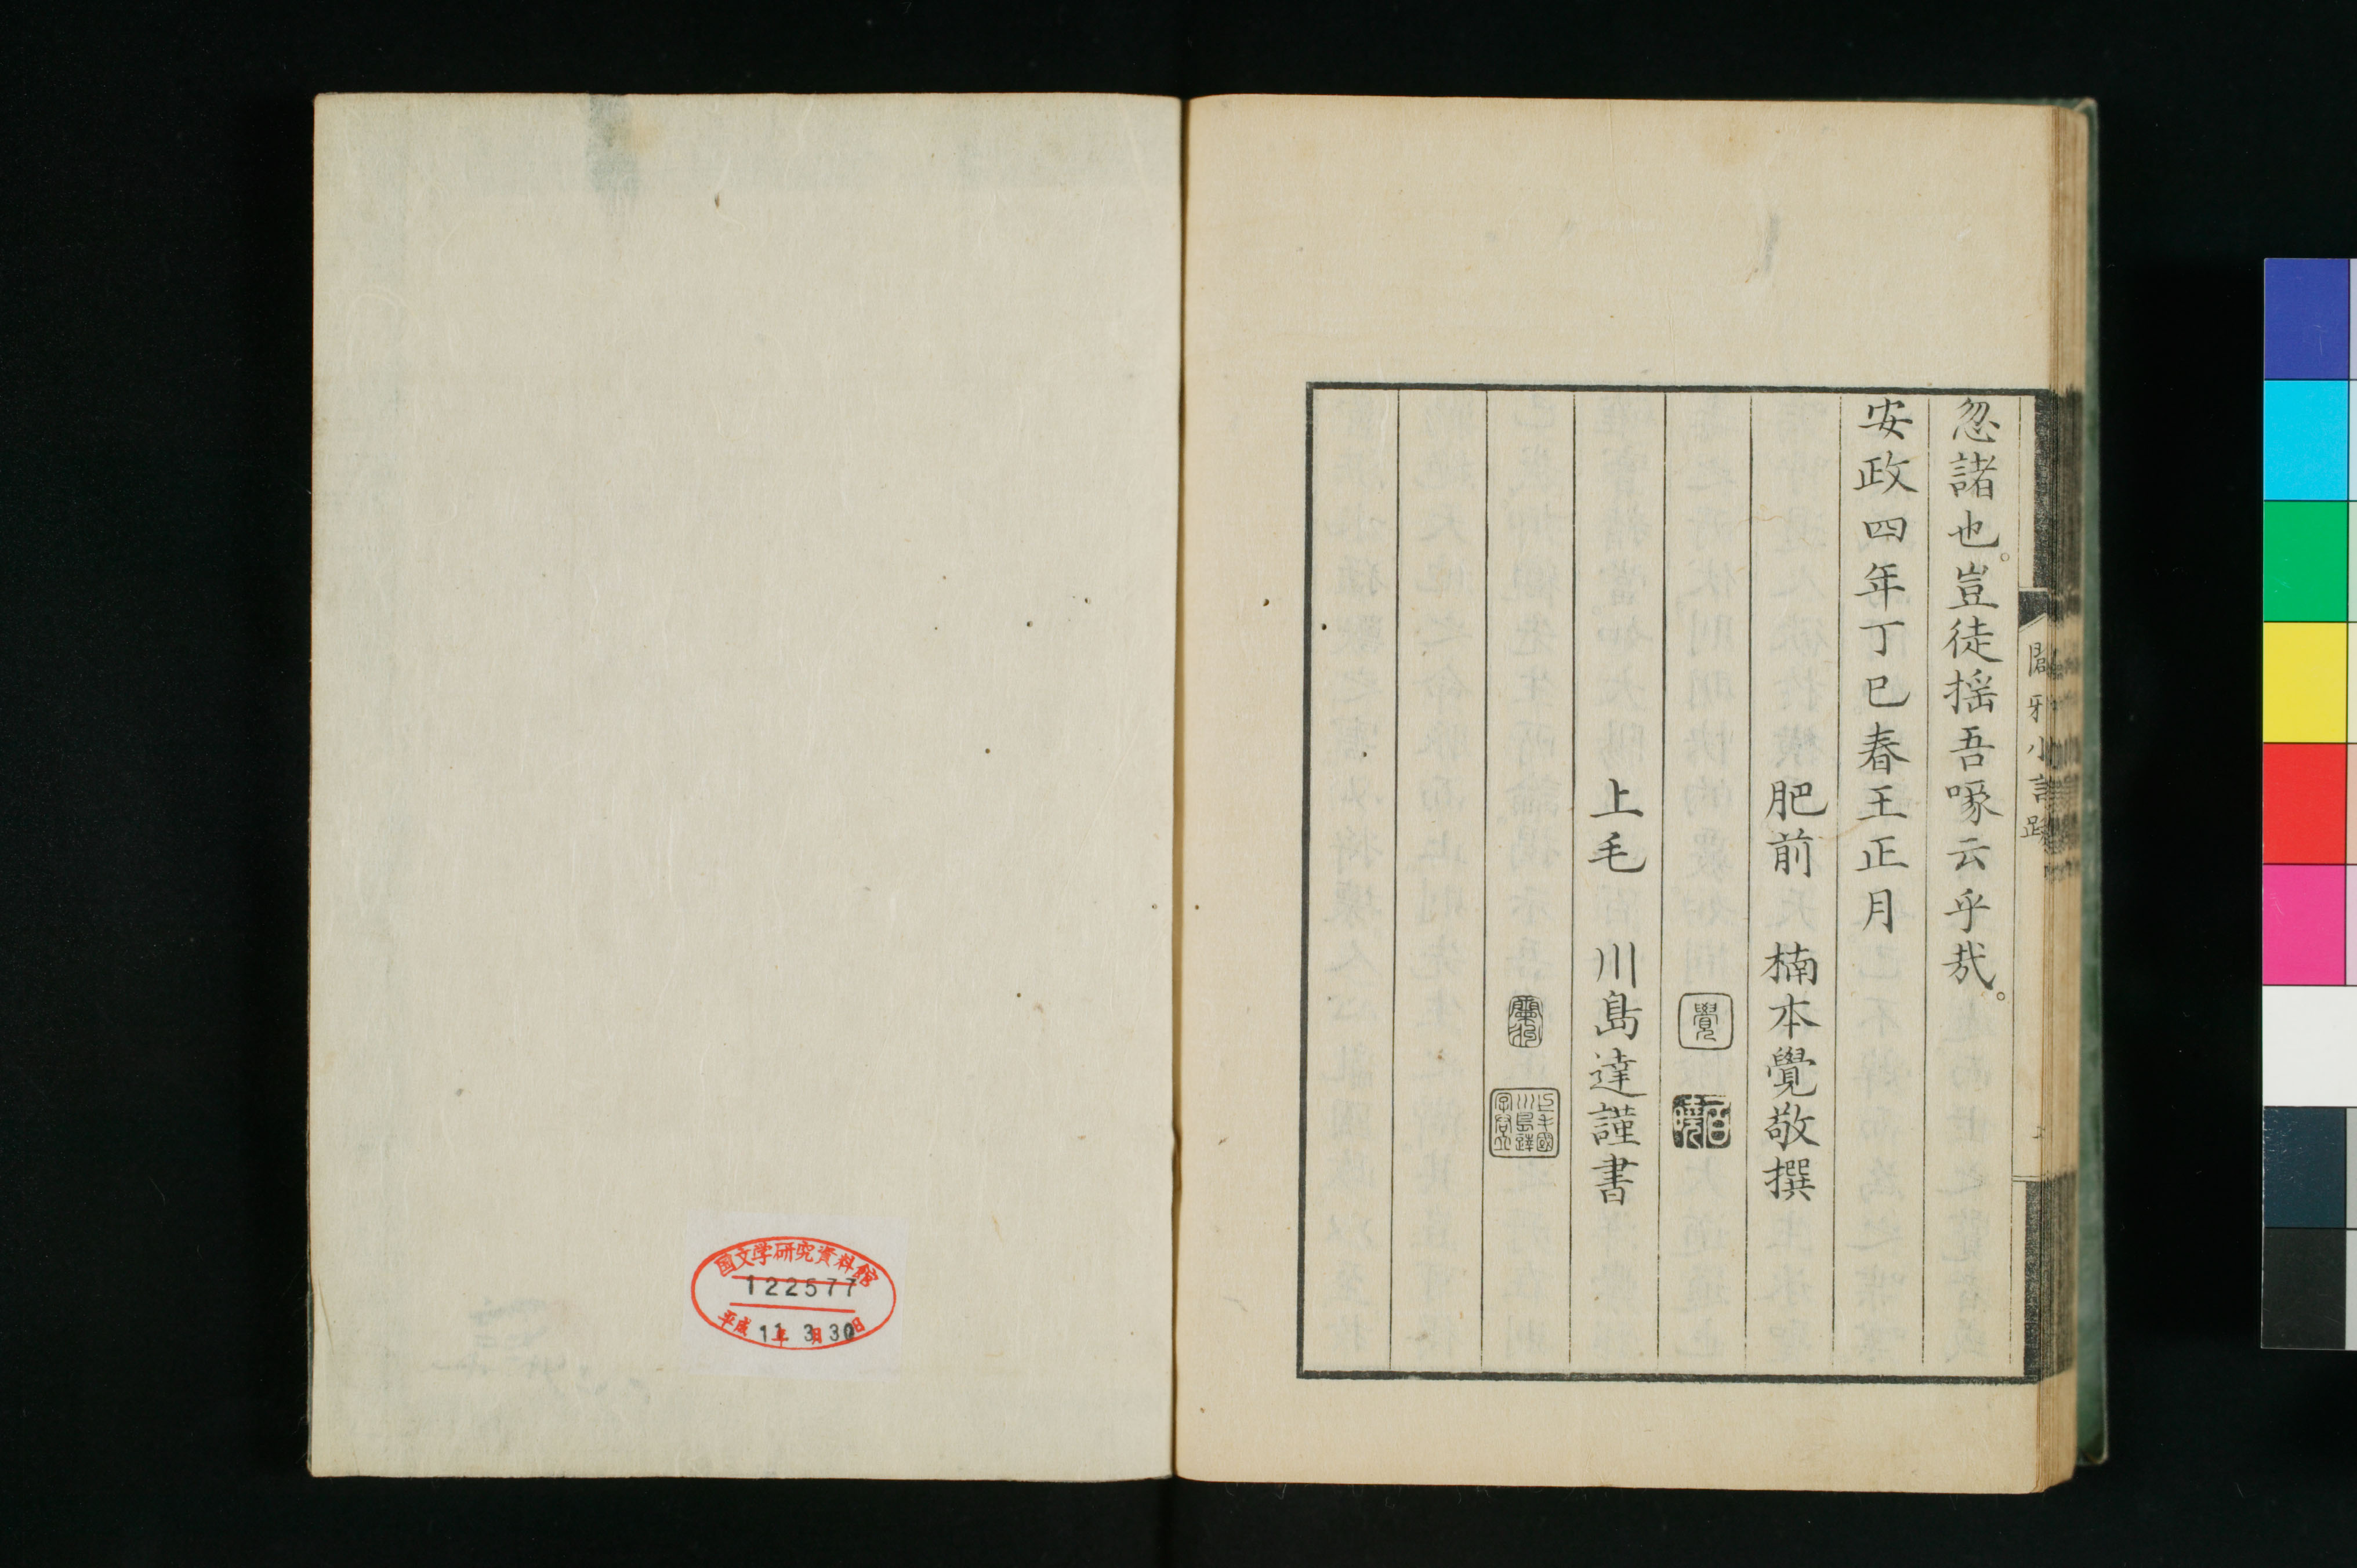 忽諸也。豈徒搖吾喙云乎哉。
安政四年丁巳春王正月
肥前　楠本覺敬撰
覺
上毛　川島達謹書
闢邪小言跋
国文学研究資料館
122577
平成11年3月30日